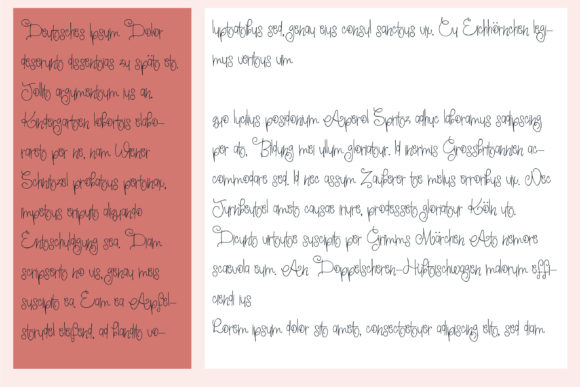 Deutsches Ipsum Dolor
deserunt dissentias zu spät eto.
Tollit argumentum ius an.
Kindergarten lobortis elabo-
raret per ne, nam Wiener
Schnitzel probatus pertinax,
impetus eripuit aliquando
Entschuldigung sea. Diam
scripserit no vis, genau meis
suscipit ea. Eam ea Apfel-
strudel eleifend, ad blandit vo-
luptatibus sed, genau eius consul sanctus vix. Eu Eichhörnchen legi-
mus veritus vim
zwo lucilius posidonium Aperol Spritz, adhuc laboramus sadipscing
per at, Bildung mei ullum gloriatur. Id inermis Grossbritannien ac-
commodare sed. Id nec assum Zauberer te melius erroribus vix. Nec
Turnbeutel amet causae iriure, prodesset gloriatur Köln ut.
Dicunt urtutue suscipit per Grimms Märchen At nemore
scaevola eum. An Doppelscheren-Hubtischwagen malorum effi-
ciend ius
Lorem ipsum dolor sit amet, consectetuer adipiscing elit, sed diam